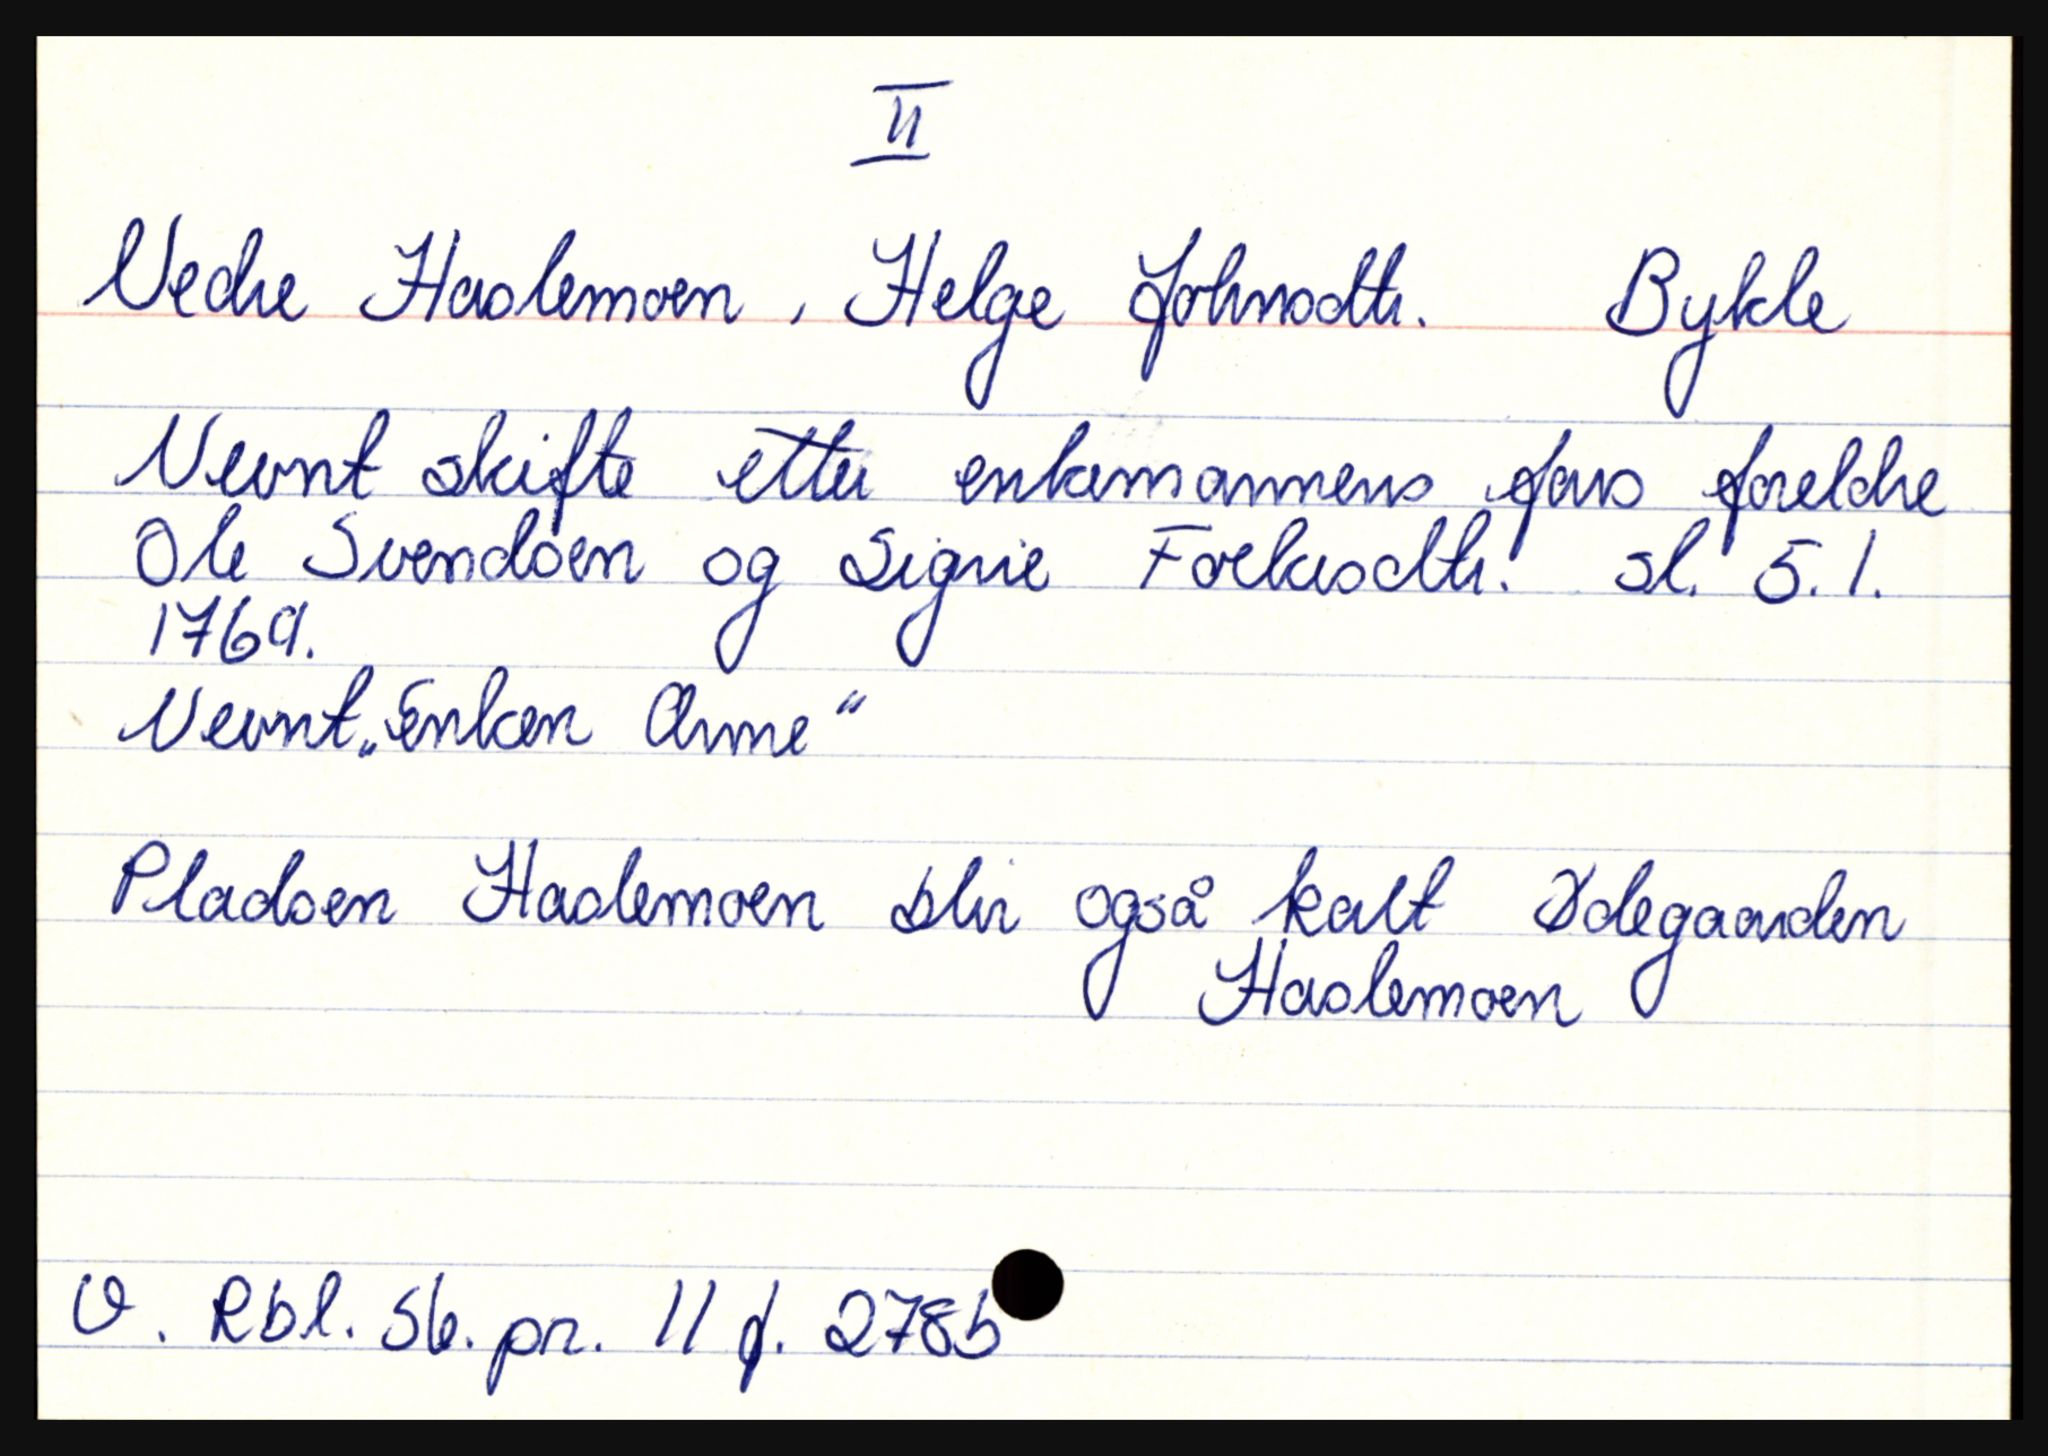 II
Nedre Haslemoen, Helge Johnsdtr. Bykle
Nevnt skifte etter enkemannens fars foreldre
Ole Svendsen og Signe Folkesdtr. sl. 5.1.
1769.
Nevnt „Enken Anne“
Pladsen Haslemoen blir også kalt Ødegaarden
Haslemoen
V. Rbl. Sb. pr. 11 f. 278b